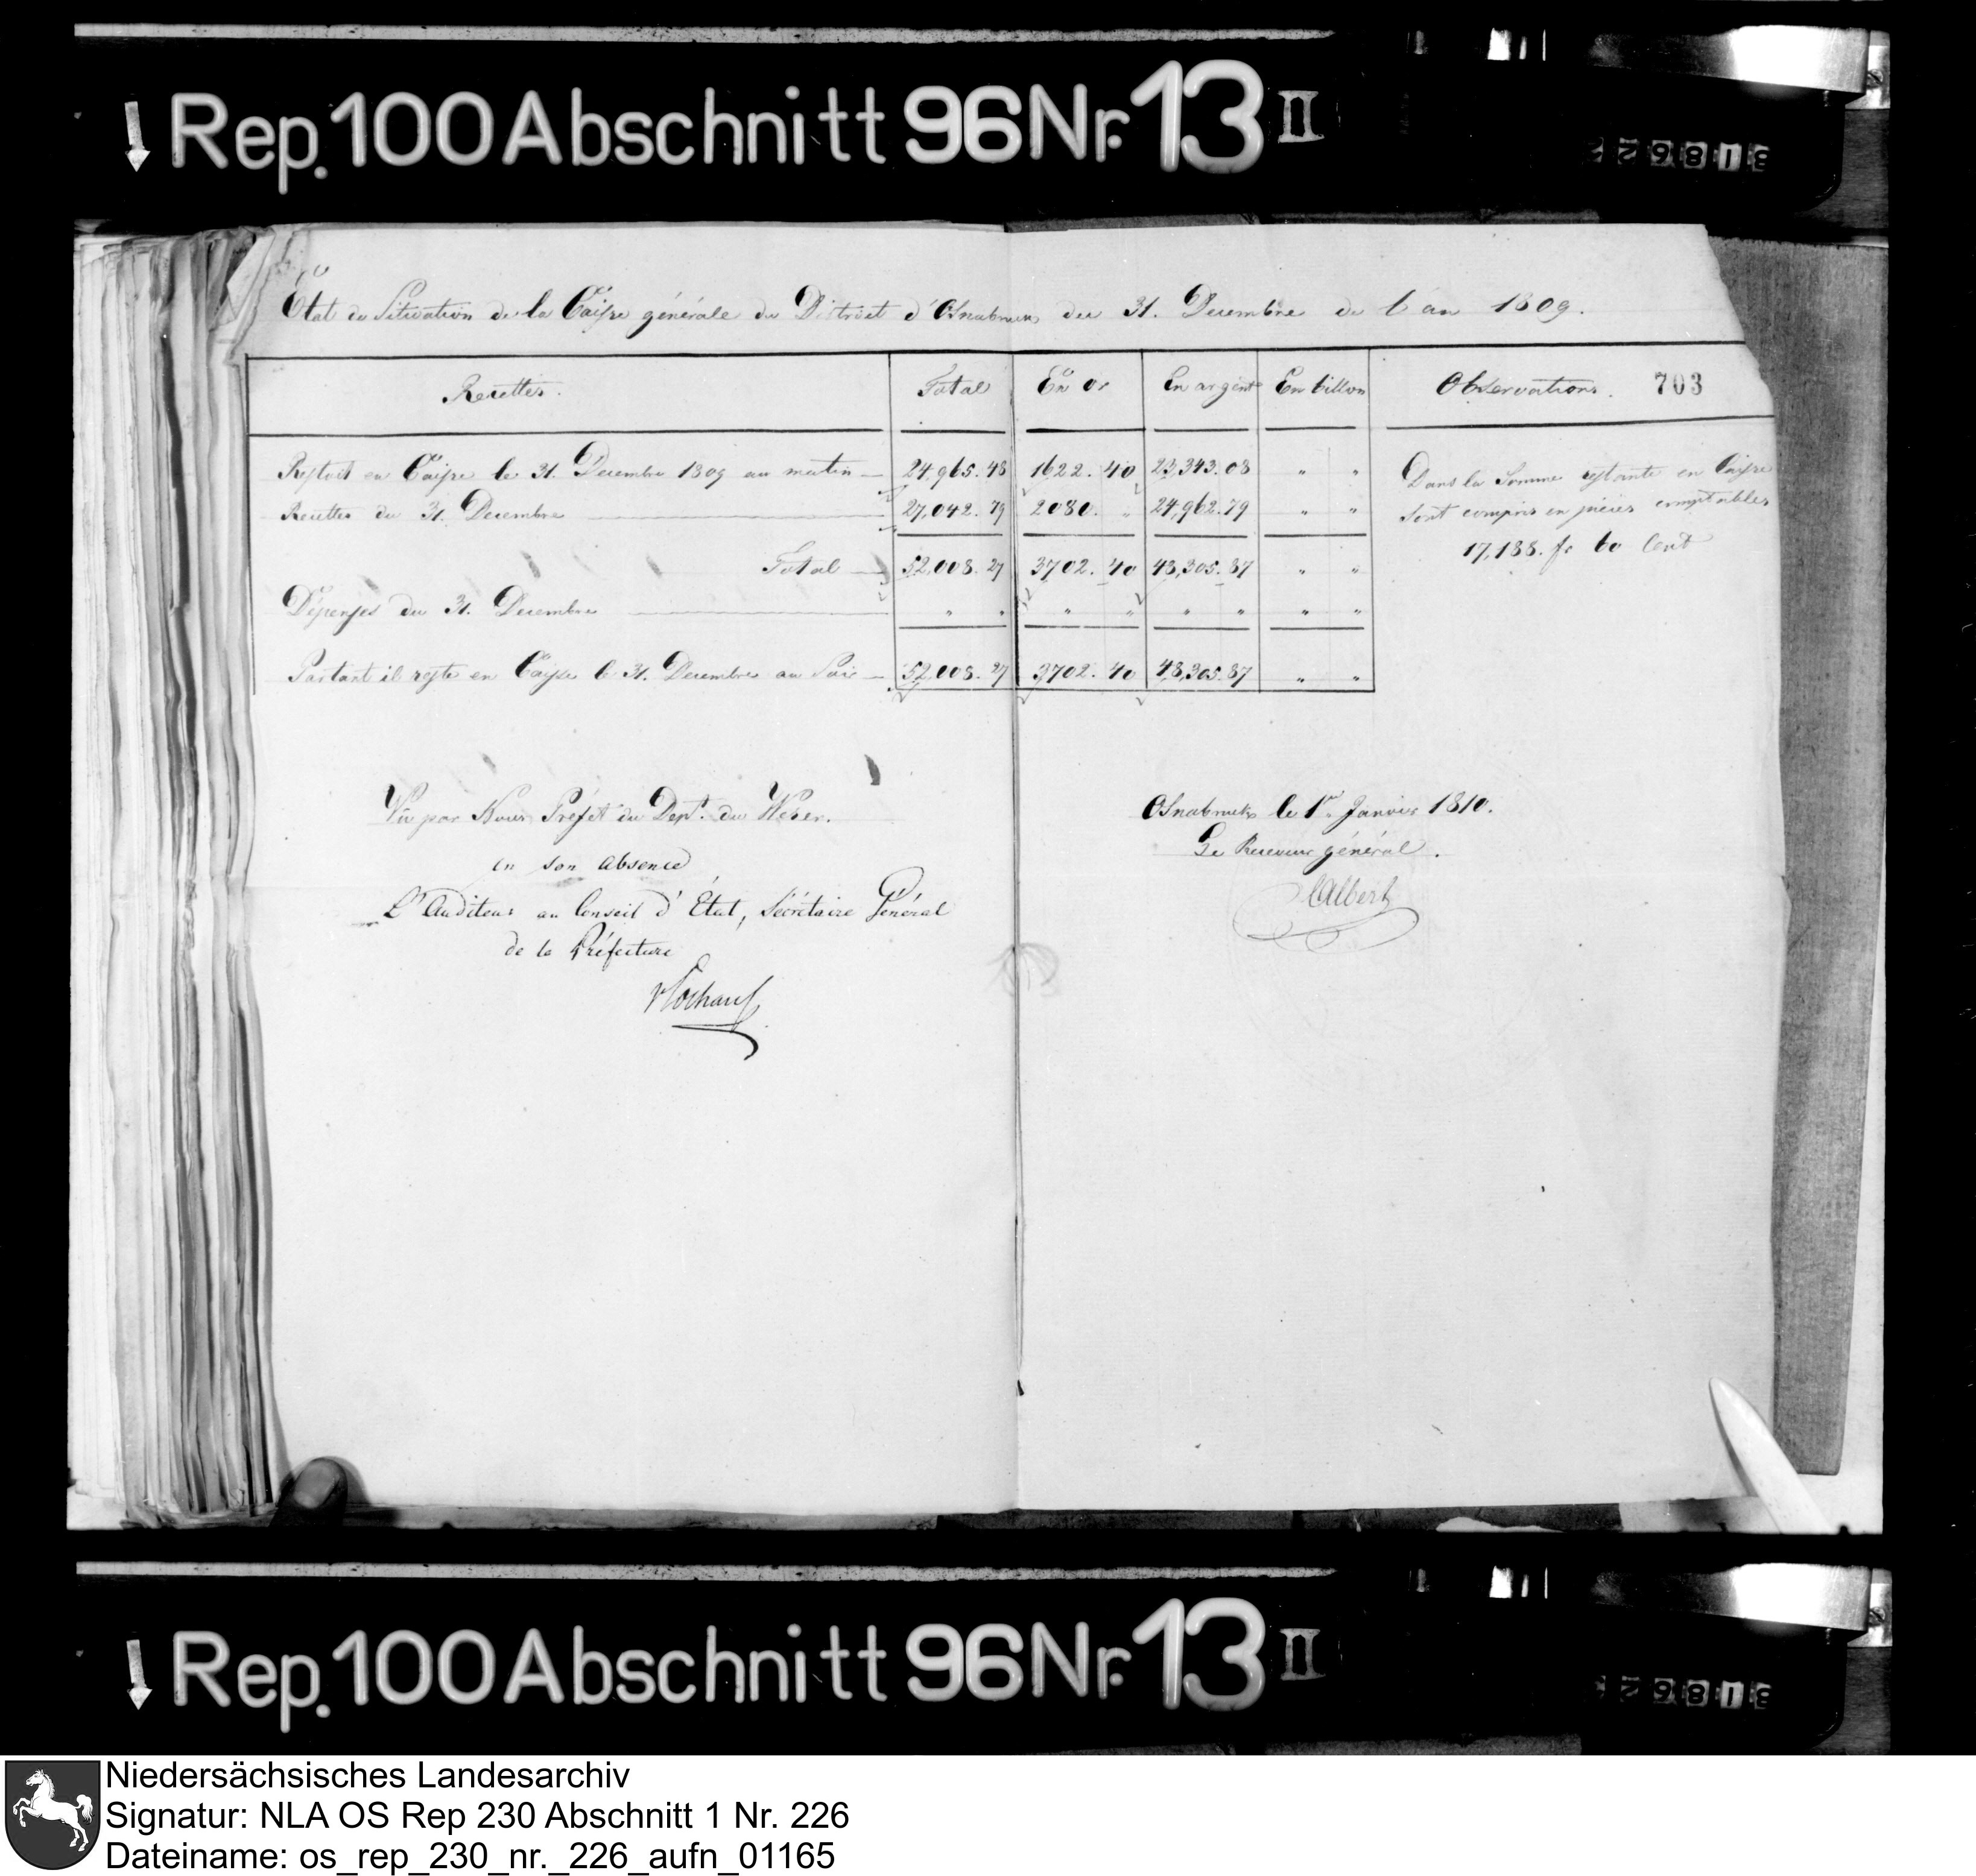 Rep. 100 Abschnitt 96 Nr. 13 II
Etat de Situation de la Caisse générale du District d'Osnabruck du 31. Decembre de l'an 1809.
Recettes. Total En or En argent En billon Observations. 703
Restoit en Caisse le 31. Decembre 1809 au matin — 24,965. 48 1622. 40 23,343. 08 " "
Recettes du 31. Decembre — 27,042. 79 2080. " 24,962. 79 " "
Total — 52,008. 27 3702. 40 48,305. 87 " "
Dépenses du 31. Decembre — " " " " " " " "
Partant il reste en Caisse le 31. Decembre au Soir — 52,008. 27 3702. 40 48,305. 87 " "
Dans la Somme restante en Caisse
sont compris en pièces comptables
17,188. fr 60 Cent
Vu par Nous Préfet du Dept. du Weser.
en son absence
L'Auditeur au Conseil d'Etat, Sécrétaire Général
de la Préfecture
Osnabruck le 1er Janvier 1810.
Le Receveur général.
Rep. 100 Abschnitt 96 Nr. 13 II
Niedersächsisches Landesarchiv
Signatur: NLA OS Rep 230 Abschnitt 1 Nr. 226
Dateiname: os_rep_230_nr._226_aufn_01165